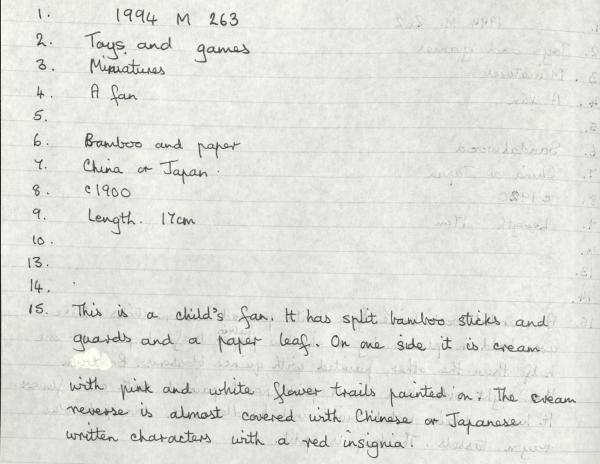 1. 1994 M 263
2. Toys and games
3. Miniatures
4. A fan
5.
6. Bamboo and paper
7. China or Japan.
8. c1900
9. Length. 17cm
10.
13.
14.
15. This is a child's fan. It has split bamboo sticks and
guards and a paper leaf. On one side it is cream
with pink and white flower trails painted on. The cream
reverse is almost covered with Chinese or Japanese
written characters with a red insignia.